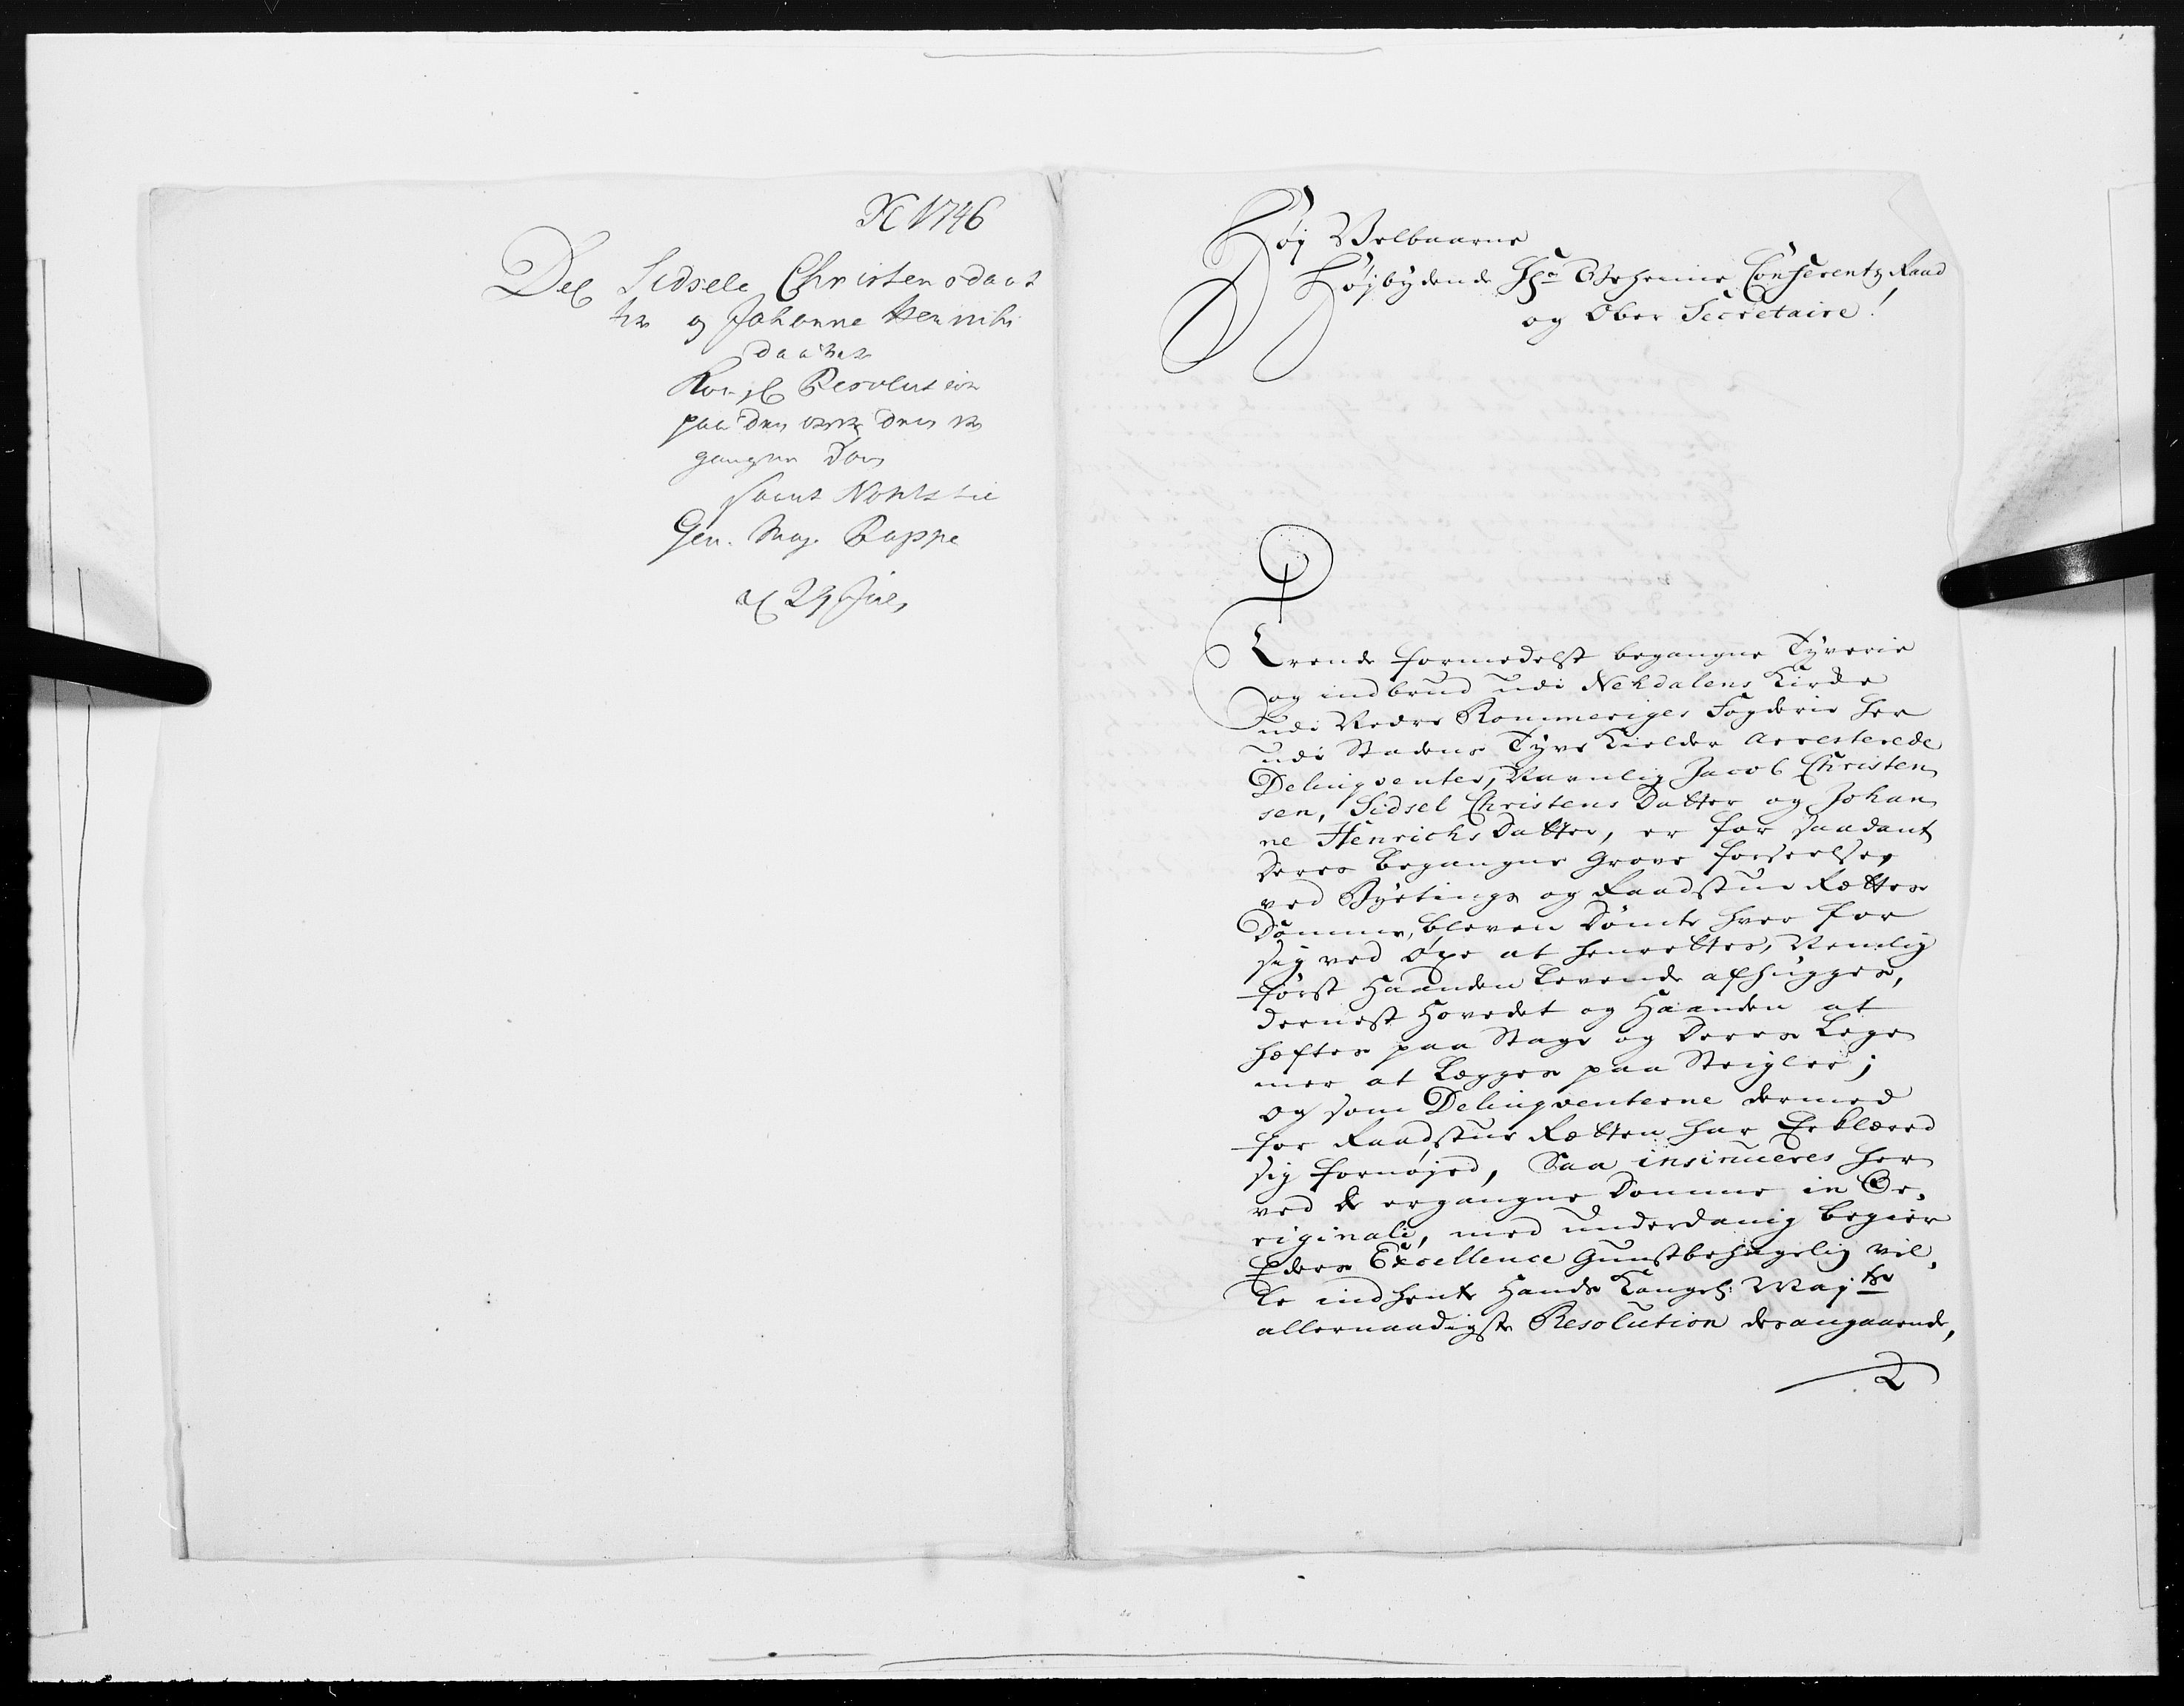 1746
Del Sidsele Christensdaat
ter og Johanne Henrichs
daatter
Kongl Resolution
paa den over dem er
gangne Dom
samt Notits til
Gen. Maj. Rappe
29 Jul
Høj Velbaarne
Højbydende Hr Geheime Conferentz Raad
og Ober Secretaire!
De
formedelst begangne Tyverie
og indbrud udi Nehdalens Kirke
udi Nedre Rommeriges Fogderie her
udi Stadens Tyve Kielder Arresterede
Delinqventer, Navnlig Jacob Christen
sen, Sidsel Christens Datter og Johan
ne Henrichs Datter, er for saadant
deres begangne grove forseelser
ved Byetings og Raadstue Rættes
Domme, bleven Dømte hver for
sig ved Øxe at henrettes, Nemlig
først Haanden levende afhugges,
dernest Hovedet og Haanden at
hæftes paa Stage og deres Lege
mer at lægges paa Steigler;
og som Delinqventerne dermed
for Raadstue Rætten har Erklæred
sig fornøjed, Saa insinueres her
ved de ergangne Domme in Or,
riginali, med underdanig begier
Eders Excellence Gunstbehagelig vil,
le indhente Hands Kongel: Majts
allernaadigste Resolution derangaaende,